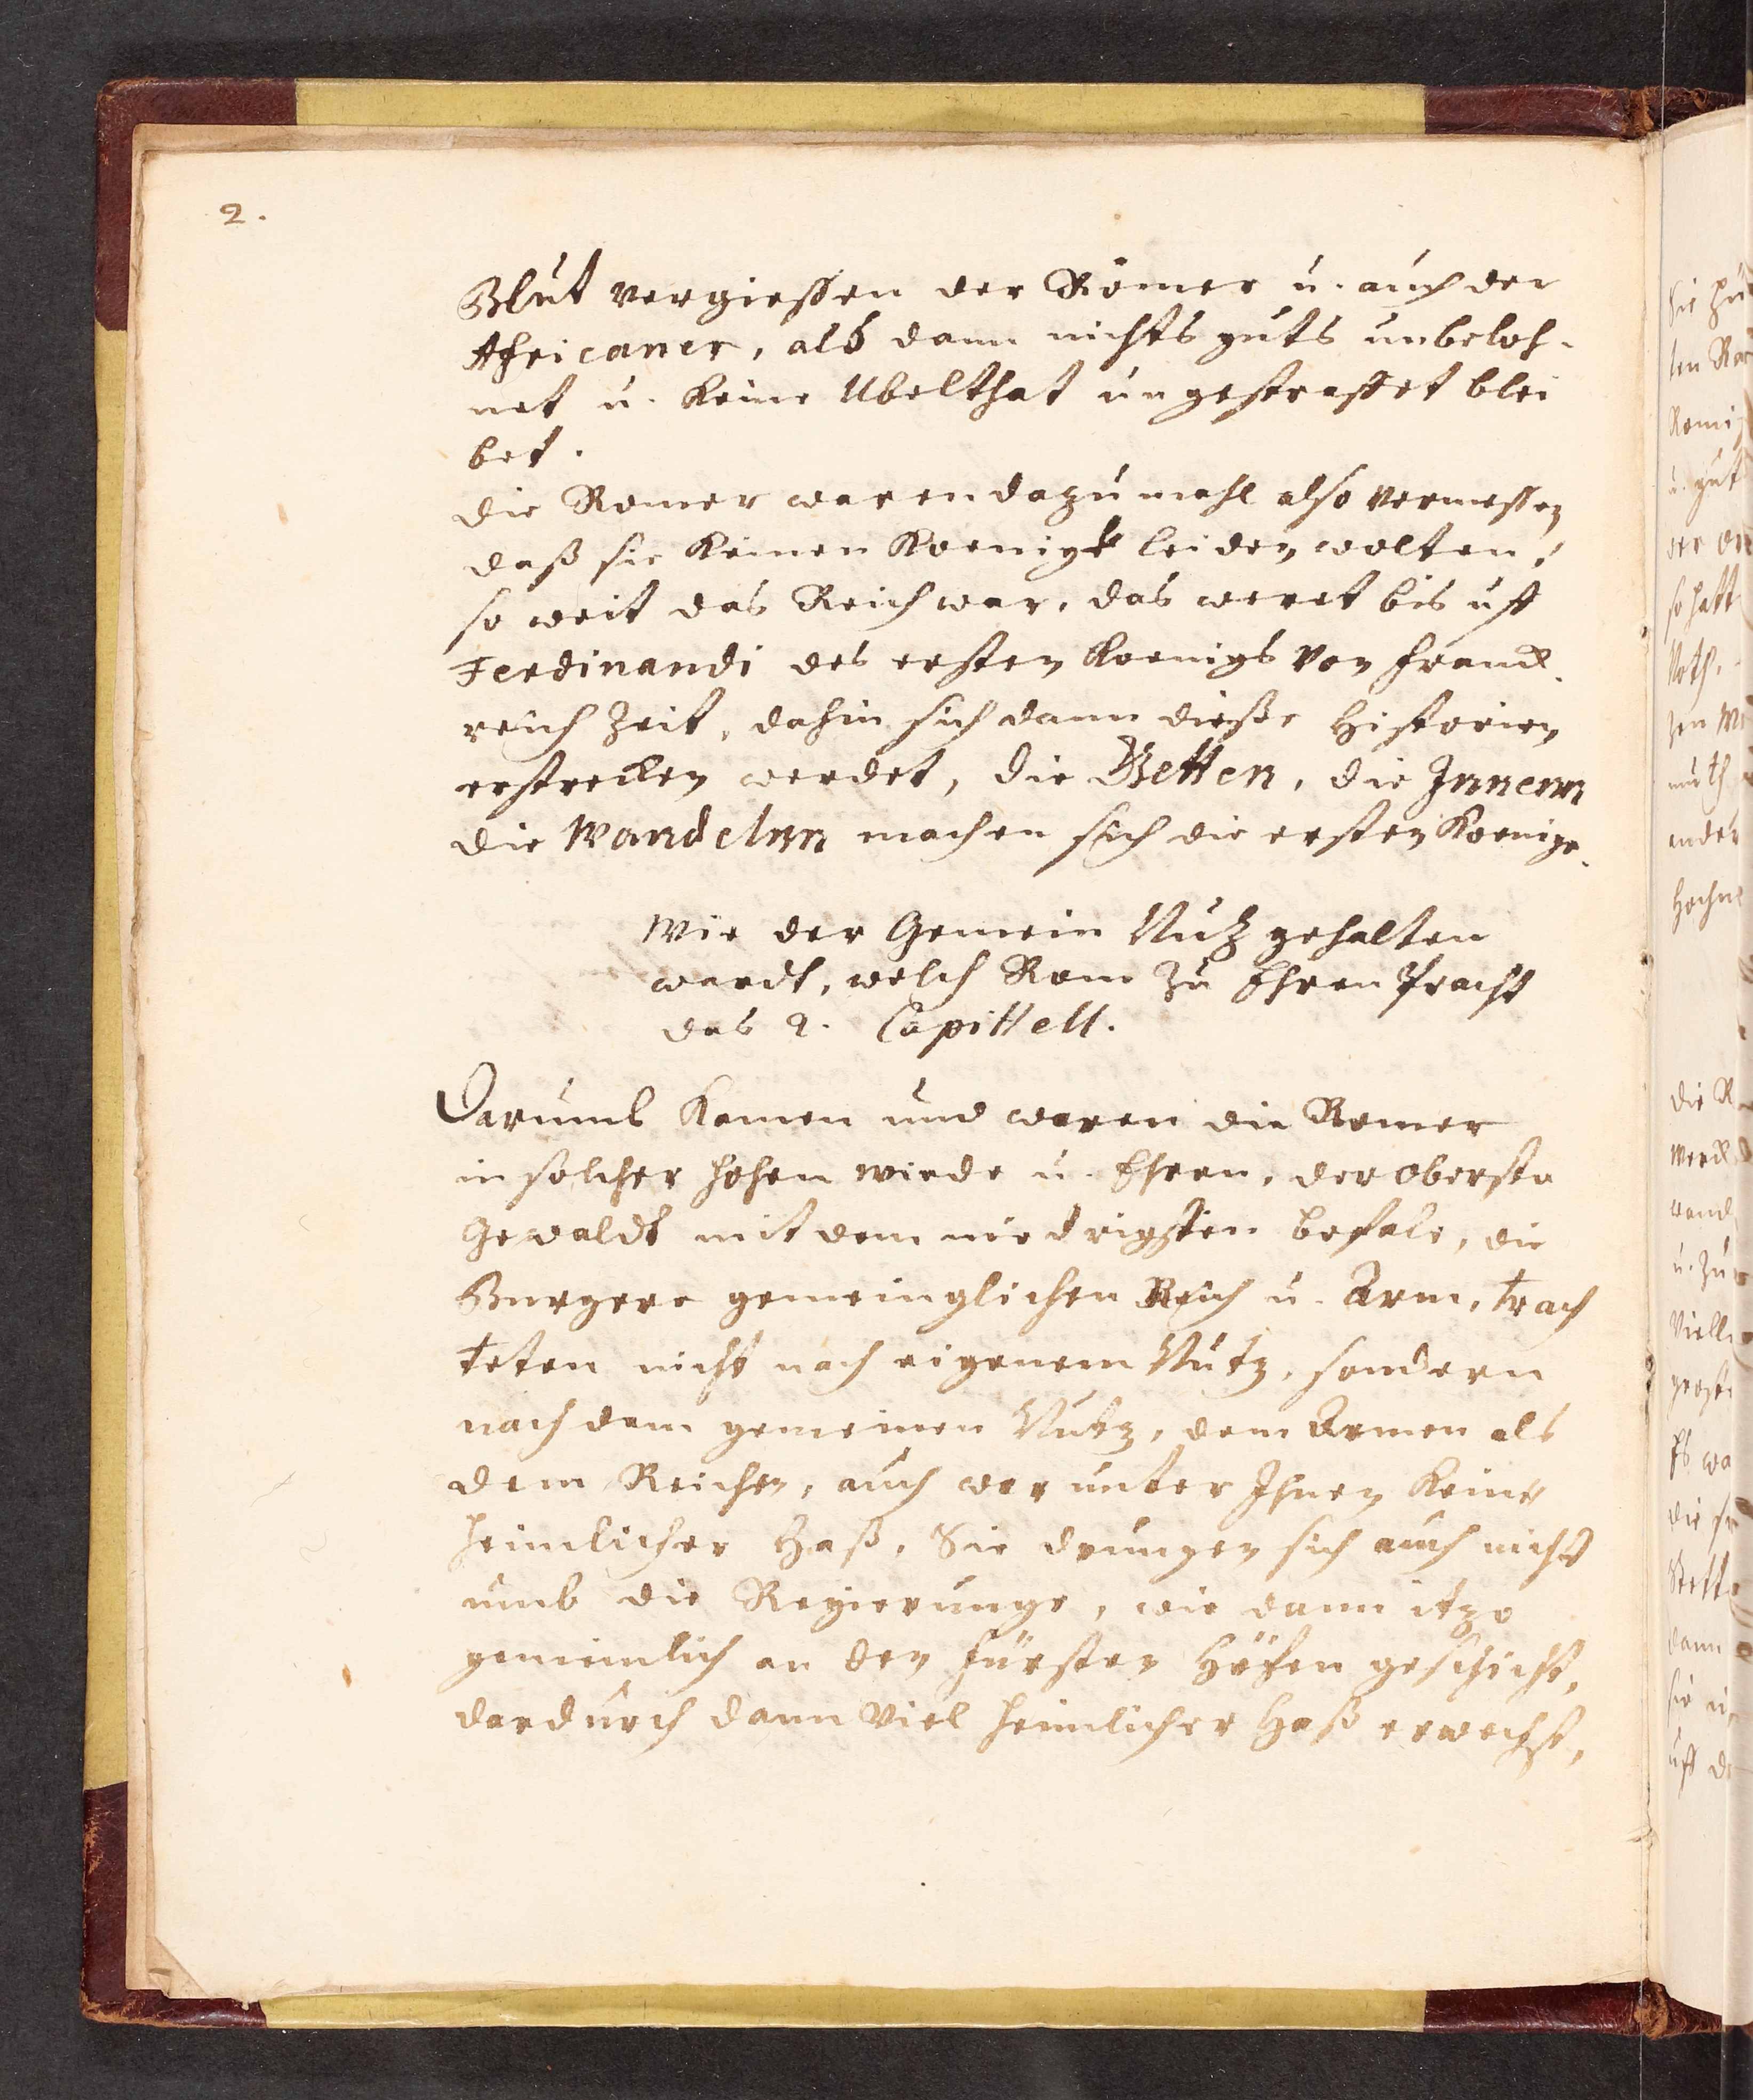 2.
Blut vergiessen der Römer u. auch der
Africaner, alß dann nichts guts unbeloh-
net u. keine Ubelthat ungestraffet blei
bet.
die Romer waren dazumahl also vermessen
daß sie keinen Koenigk leiden wolten,
so weit das Reich war, das weret bis uff
Ferdinandi des ersten Koenigs von Franck
reich Zeit, dahin sich dann dieße Historien
erstrecken werdet, die Betten, die Innenn
die Wandelnn machen sich die ersten Koenige.
Wie der Gemein Nutz gehalten
wardt, welch Rom zu Ehren bracht
das 2. Capittell.
Darumb kamen und waren die Romer
in solcher hohen wirde u. Ehren, der oberste
Gewaldt mit dem niedrigsten befale, die
Burgere gemeinglichen Reich u. Arm, trach
teten nicht nach eigenem Nutz, sondern
nach dem gemeinen Nutz, dem Armen als
dem Reichen, auch war unter Ihnen keiner
heimlicher Haß, Sie drungen sich auch nicht
umb die Regierunge, wie dann itzo
gemeinlich an den Fürsten Höfen geschicht,
dardurch dann viel heimlicher Haß erwechst,